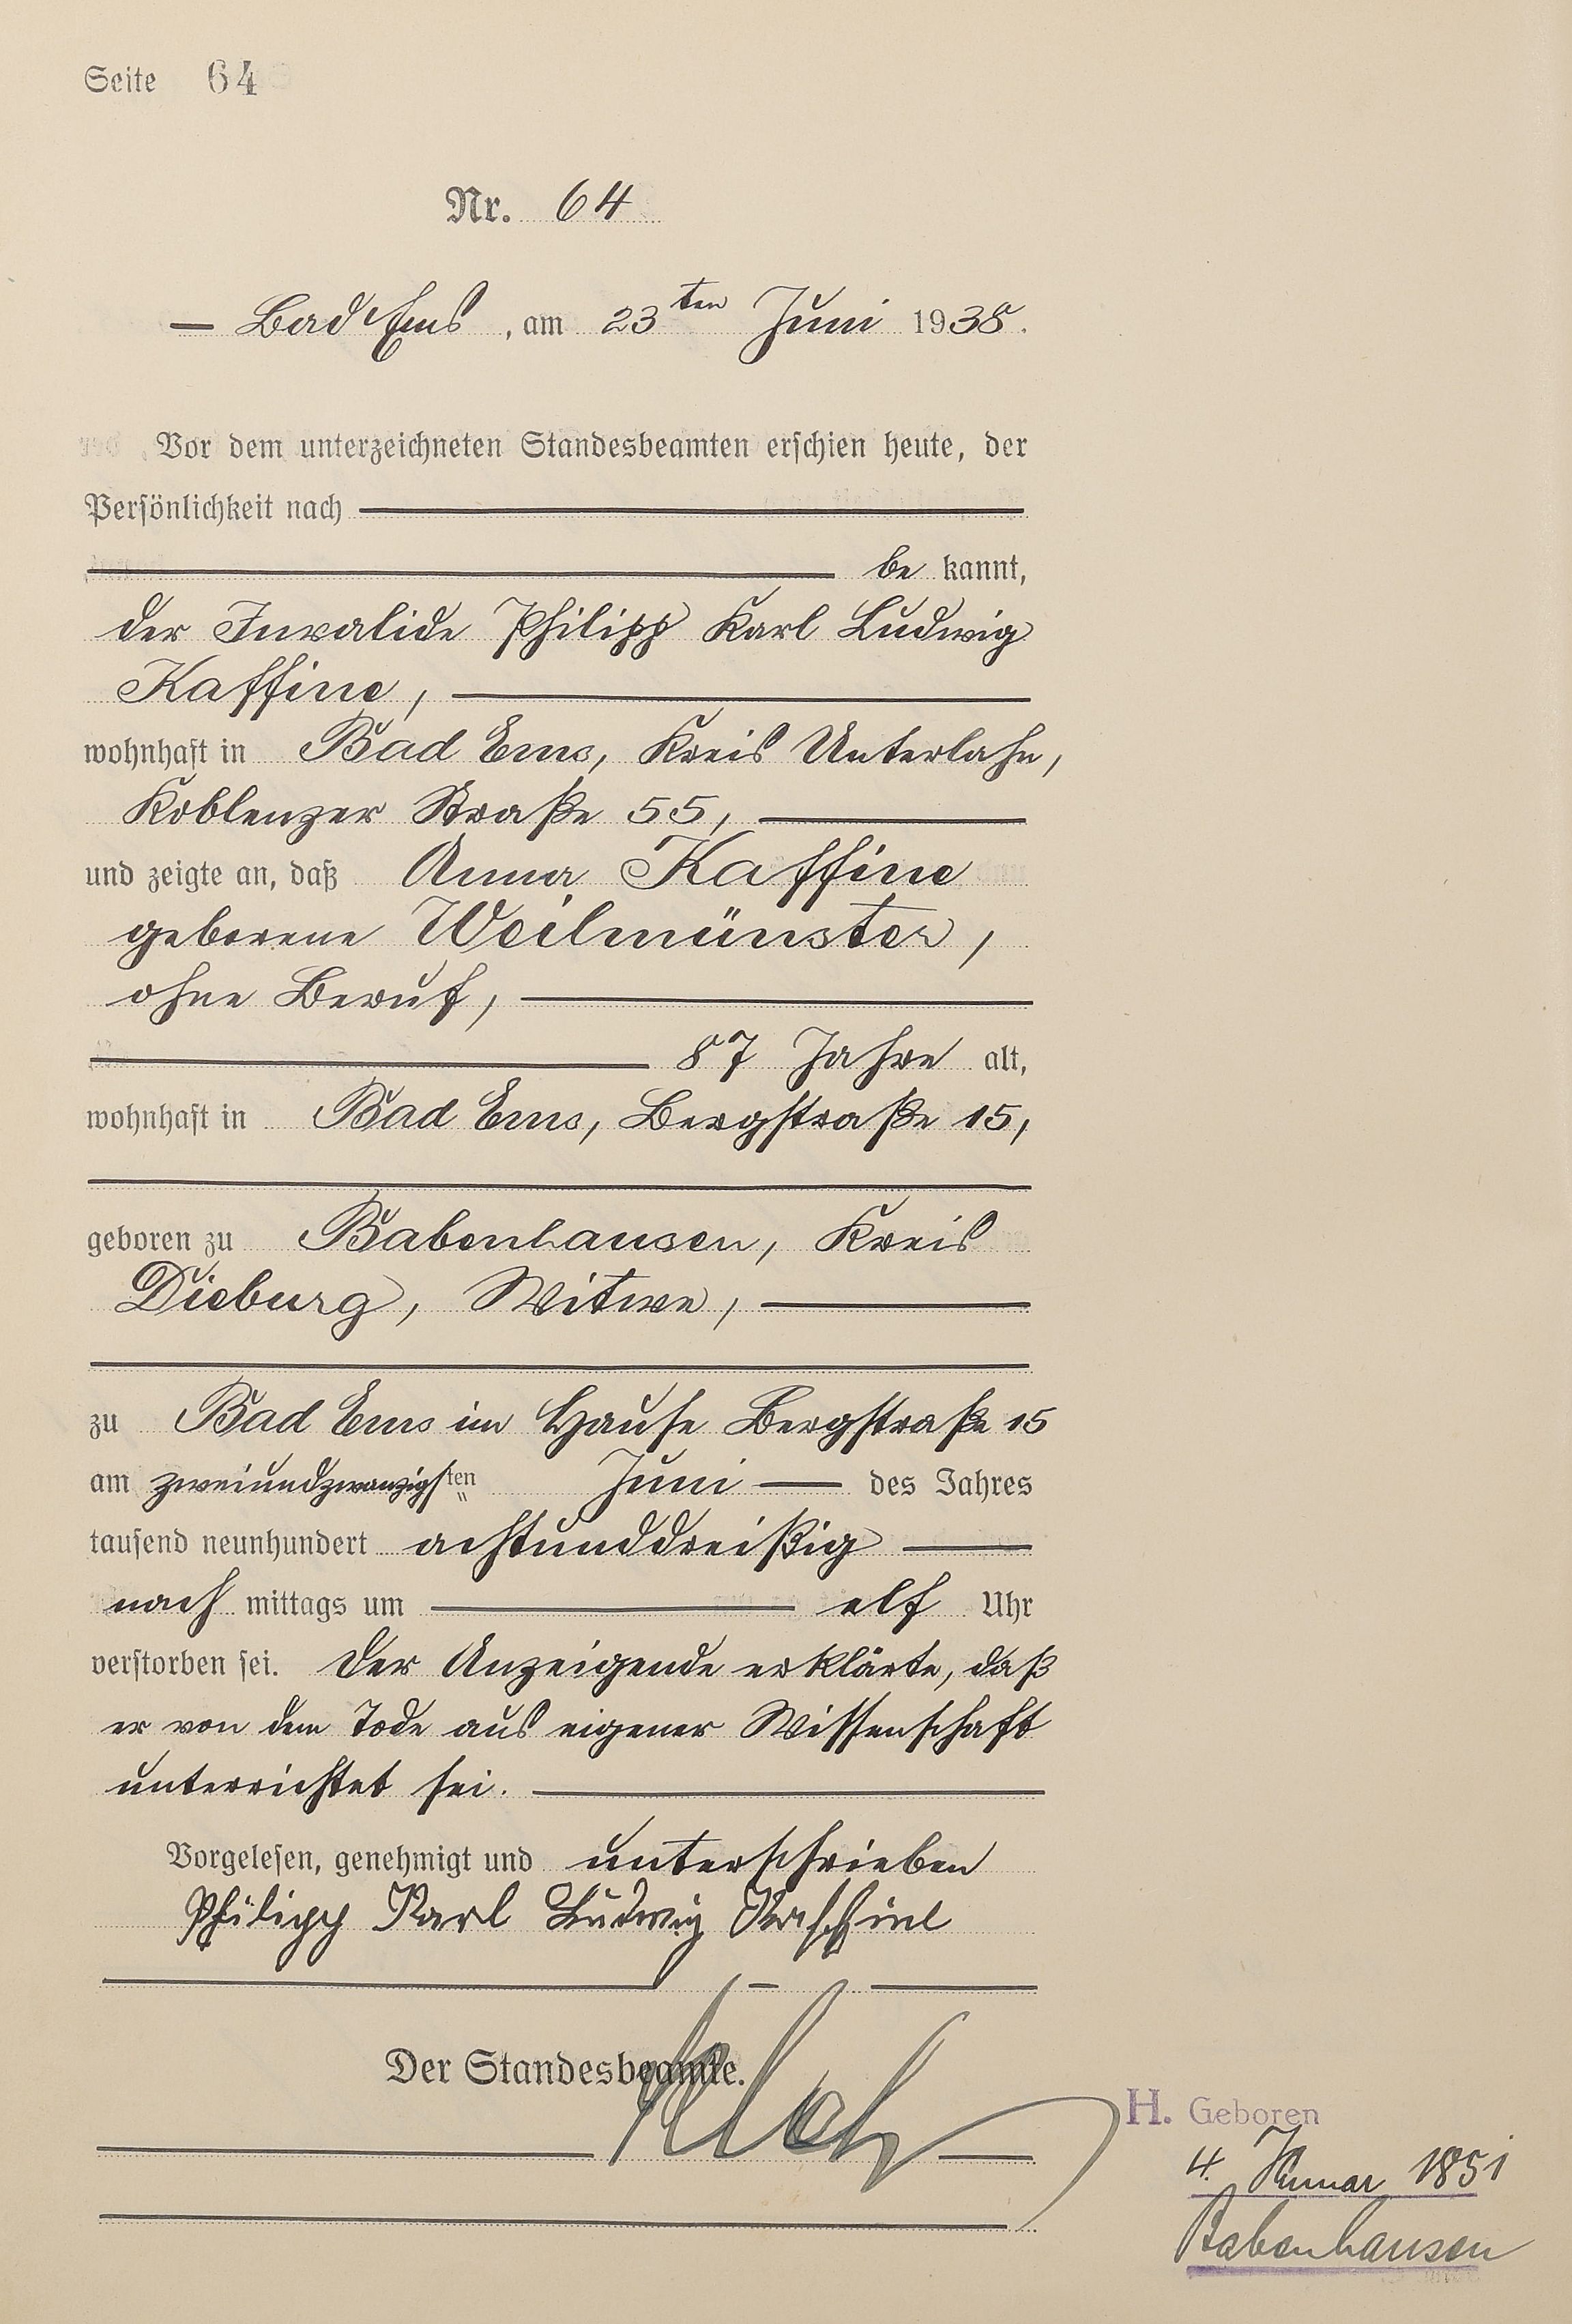 Seite 64
Nr. 64
— Bad Ems, am 23ten Juni 1938.
Vor dem unterzeichneten Standesbeamten erschien heute, der
Persönlichkeit nach
be kannt,
der Invalide Philipp Karl Ludwig
Kaffine,
wohnhaft in Bad Ems, Kreis Unterlahn,
Koblenzer Straße 55,
und zeigte an, daß Anna Kaffine
geborene Weilmünster,
ohne Beruf,
87 Jahre alt,
wohnhaft in Bad Ems, Bergstraße 15,
geboren zu Babenhausen, Kreis
Dieburg, Witwe,
zu Bad Ems im Hause Bergstraße 15
am zweiundzwanzigsten Juni — des Jahres
tausend neunhundert achtunddreißig
nach mittags um elf Uhr
verstorben sei. Der Anzeigende erklärte, daß
er von dem Tode aus eigener Wissenschaft
unterrichtet sei.
Vorgelesen, genehmigt und unterschrieben
Philipp Karl Ludwig Kaffine
Der Standesbeamte.
H. Geboren
4. Januar 1851
Babenhausen